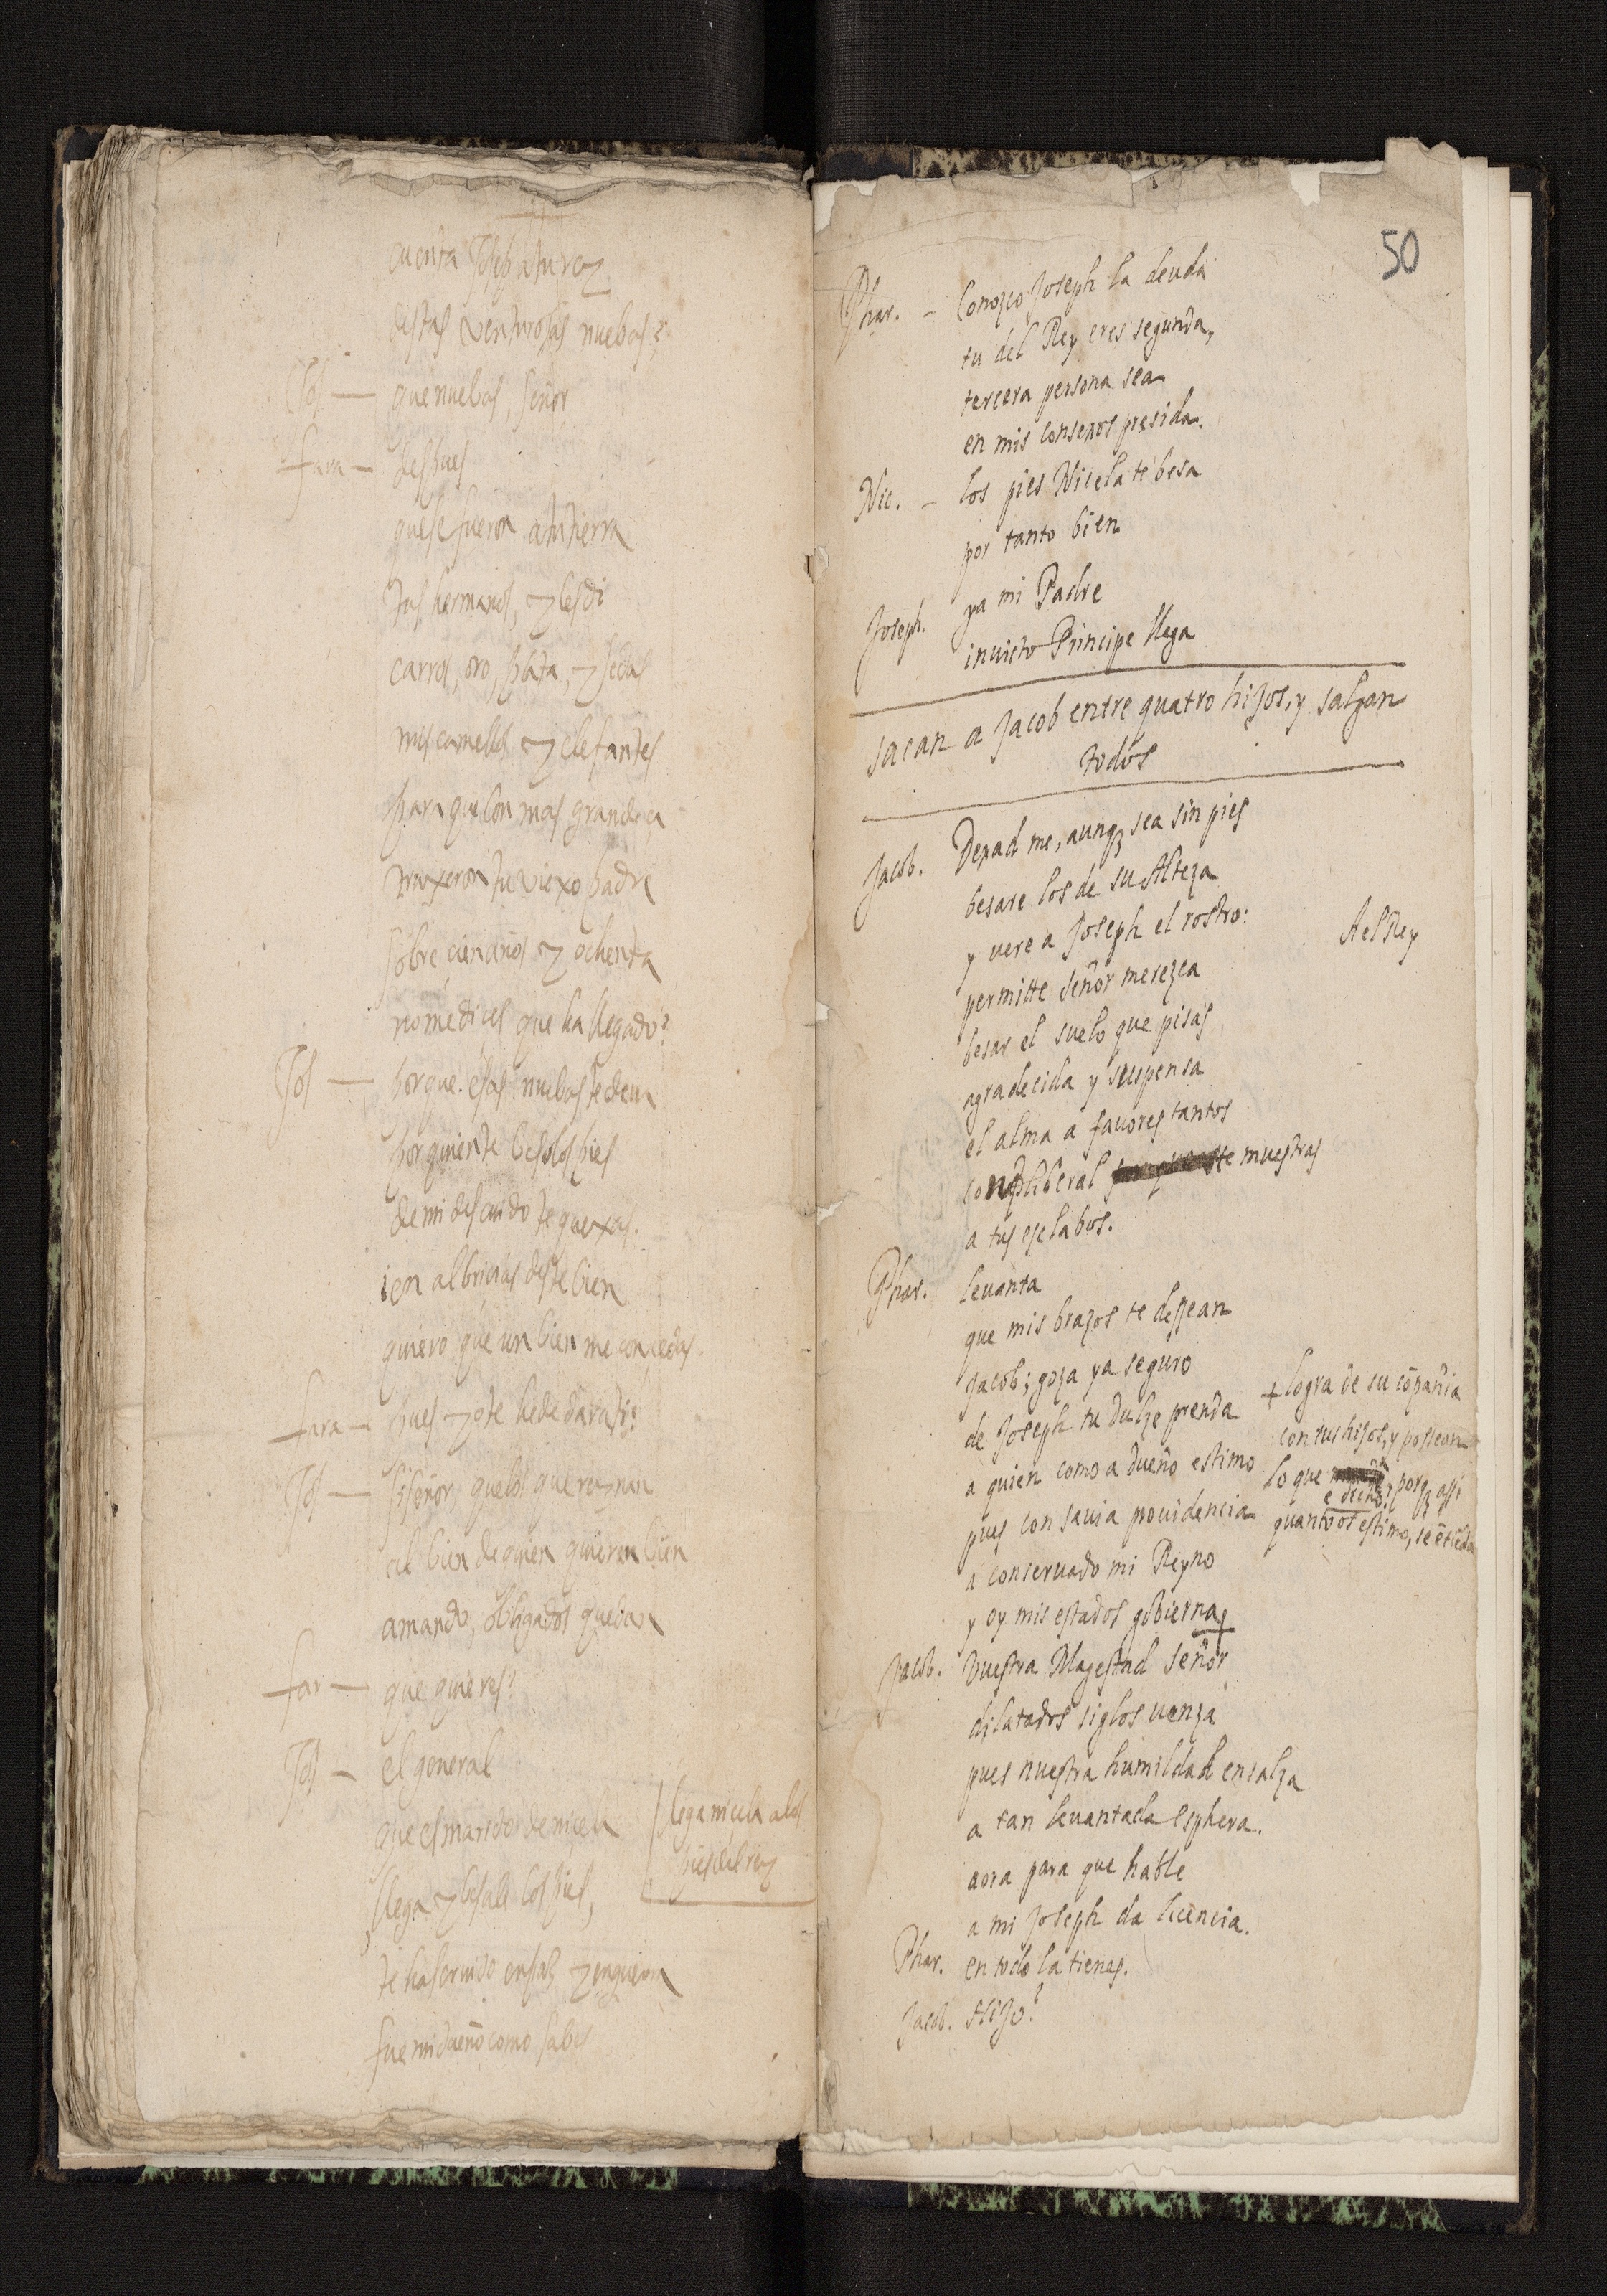 cuenta Josep a tu rey
destas venturosas nuebas?
Jos — que nuebas, señor
fara — despues
que se fueron a tu tierra
tus hermanos, y les di
carros, oro, plata, y sedas
mis camellos y elefantes
para que con mas grandeça
truxeron tu viexo padre
sobre cien años y ochenta
no me dices que ha llegado?
Jos — porque esas nuebas te deua
por quien te beso los pies
de mi descuido te quexas.
i en albricias deste bien
quiero que un bien me concedas.
fara — pues yo te he de dar a ti?
Jos — si señor, que los que reynan
al bien de quien quieren bien
amando, obligados quedan
far — que quieres?
Jos — el general
que es marido de nicela
llega nicela a los
pies del rey
llega y besale los pies,
te ha seruido en paz y en guerra
fue mi dueño como sabes
50
Phar. — Conozco Joseph la deuda
tu del Rey eres segunda,
tercera persona sea
en mis consexos presida.
Nic. — los pies Nicela te besa
por tanto bien
Joseph. ya mi Padre
inuicto Principe llega
sacan a Jacob entre quatro hijos, y salgan
todos
Jacob. Dexad me, aunq sea sin pies
besare los de su Alteza
y vere a Joseph el rostro:
Ael Rey
permitte señor merezca
besar el suelo que pisas
agradecida y suspensa
el alma a fauores tantos
liberal te muestras
a tus esclabos.
Phar. leuanta
que mis brazos te dessean
Jacob; goza ya seguro
de Joseph tu dulze prenda
a quien como a dueño estimo
pues con sauia prouidencia
a conseruado mi Reyno
y oy mis estados gobierna +
+ logra de su cōpañia
con tus hijos, y possean
lo que e dicho, porq assi
quanto os estimo, se ētiēda
Jacob. Vuestra Magestad señor
dilatados siglos uenza
pues nuestra humildad ensalza
a tan leuantada esphera.
aora para que hable
a mi Joseph da licencia.
Phar. en todo la tienes.
Jacob. Hijo?